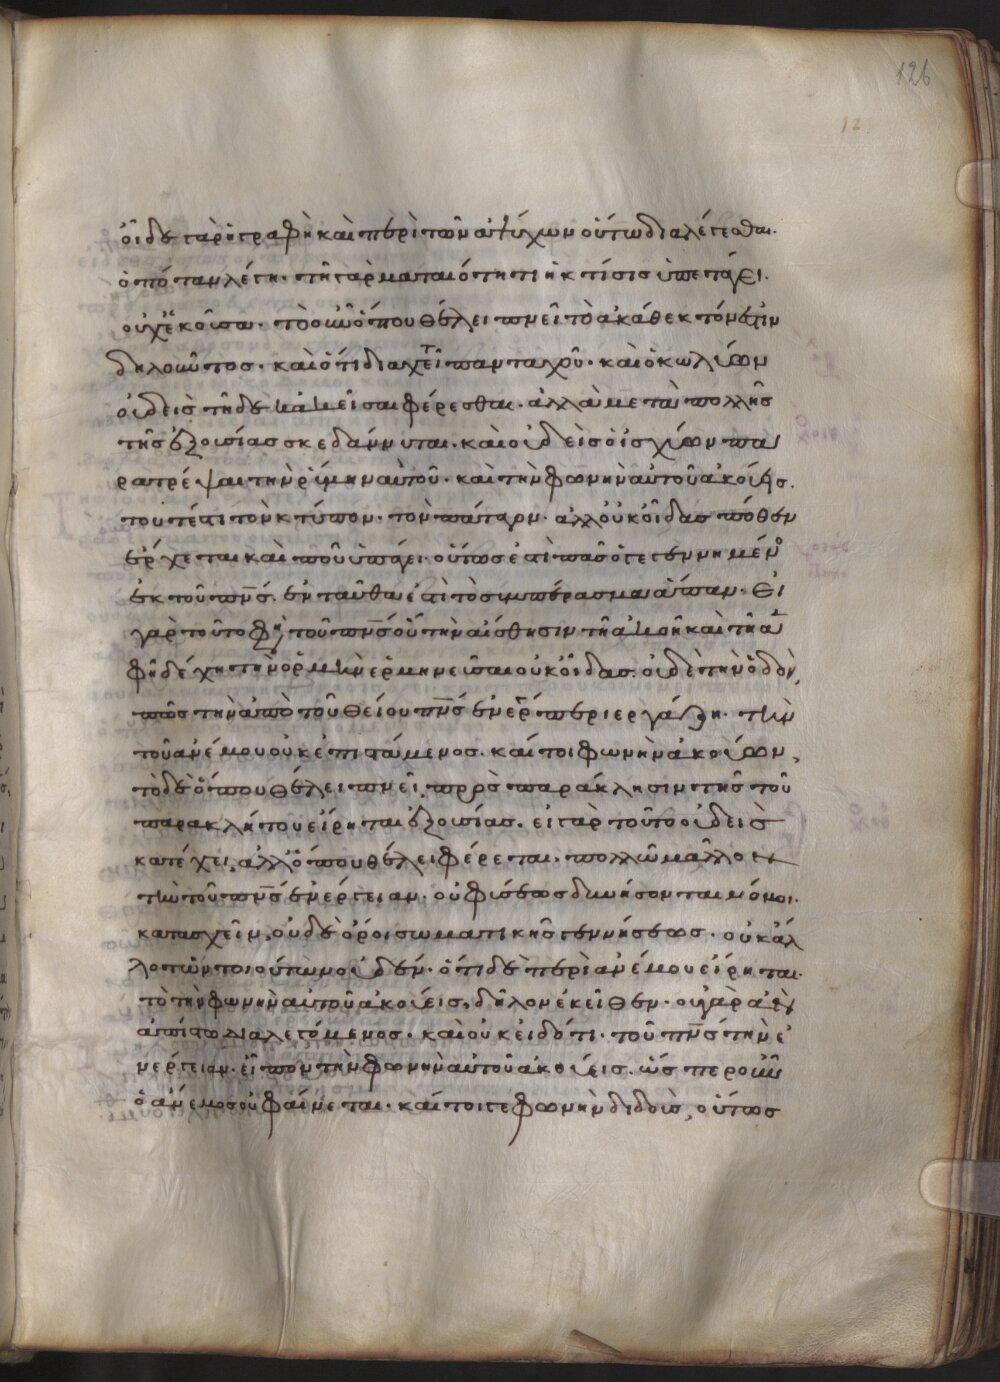 126
12
οἶδε γὰρ ἡ γραφὴ καὶ περὶ τῶν ἀψύχων οὕτω διαλέγεσθαι.
ὁπόταν λέγη. τῆ γὰρ ματαιότητι ἡ κτίσις ὑπετάγη.
οὐχ ἑκοῦσα. τὸ οὖν ὅπου θέλει πνεῖ τὸ ἀκάθεκτόν ἐστιν
δηλοῦντος. καὶ ὅτι διαχεῖται πανταχοῦ. καὶ ὁ κωλύων
οὐδεὶς τῆδε κἀκεῖσαι φέρεσθαι. ἀλλὰ μετὰ πολλῆς
τῆς ἐξουσίας σκεδάννυται. καὶ οὐδεὶς ὁ ἰσχύων πα
ρατρέψαι τὴν ῥύμην αὐτοῦ. καὶ τὴν φωνὴν αὐτοῦ ἀκούεις.
τουτέστι τὸν κτύπον. τὸν πάταγον. ἀλλ' οὐκ οἶδας πόθεν
ἔρχεται καὶ ποῦ ὑπάγει. οὕτως ἐστὶ πᾶς ὁ γεγεννημένος
ἐκ τοῦ πνς. ἐνταῦθα ἐστὶ τὸ συμπέρασμα ἅπαν. εἰ
γὰρ τούτου φη τοῦ πνς οὗ τὴν αἴσθησιν τῆ ἀκοῆ καὶ τῆ ἁ
φῆ δέχη τὴν ὁρμὴν ἑρμηνεῦσαι οὐκ οἶδας. οὐδὲ τὴν ὁδὸν,
πῶς τὴν ἀπὸ τοῦ θείου πνς ἐνέργειαν περιεργάζη. τὴν
τοῦ ἀνέμου οὐκ ἐπιστάμενος. καίτοι φωνὴν ἀκούων,
τὸ δὲ ὅπου θέλει πνεῖ, πρὸς παράκλησιν τῆς τοῦ
παρακλήτου εἴρηται ἐξουσίας. εἰ γὰρ τοῦτο οὐδεὶς
κατέχει, ἀλλ' ὅπου θέλει φέρεται. πολλῶ μᾶλλον
τὴν τοῦ πνς ἐνέργειαν. οὐ φύσεως δυνήσονται νόμοι.
κατασχεῖν, οὐδὲ ὅροι σωματικῆς γεννήσεως. οὐκ ἄλ
λο τῶν τοιούτων οὐδέν. ὅτι δὲ περὶ ἀνέμου εἴρηται.
τὸ τὴν φωνὴν αὐτοῦ ἀκούεις, δῆλον ἐκεῖθεν. οὐ γὰρ ἂν
ἀπίστω διαλεγόμενος. καὶ οὐκ εἰδότι. τοῦ πνς τὴν ἐ
νέργειαν. εἶπον τὴν φωνὴν αὐτοῦ ἀκούεις. ὥσπερ οὖν
ὁ ἄνεμος οὐ φαίνεται. καίτοιγε φωνὴν διδούς, οὕτως